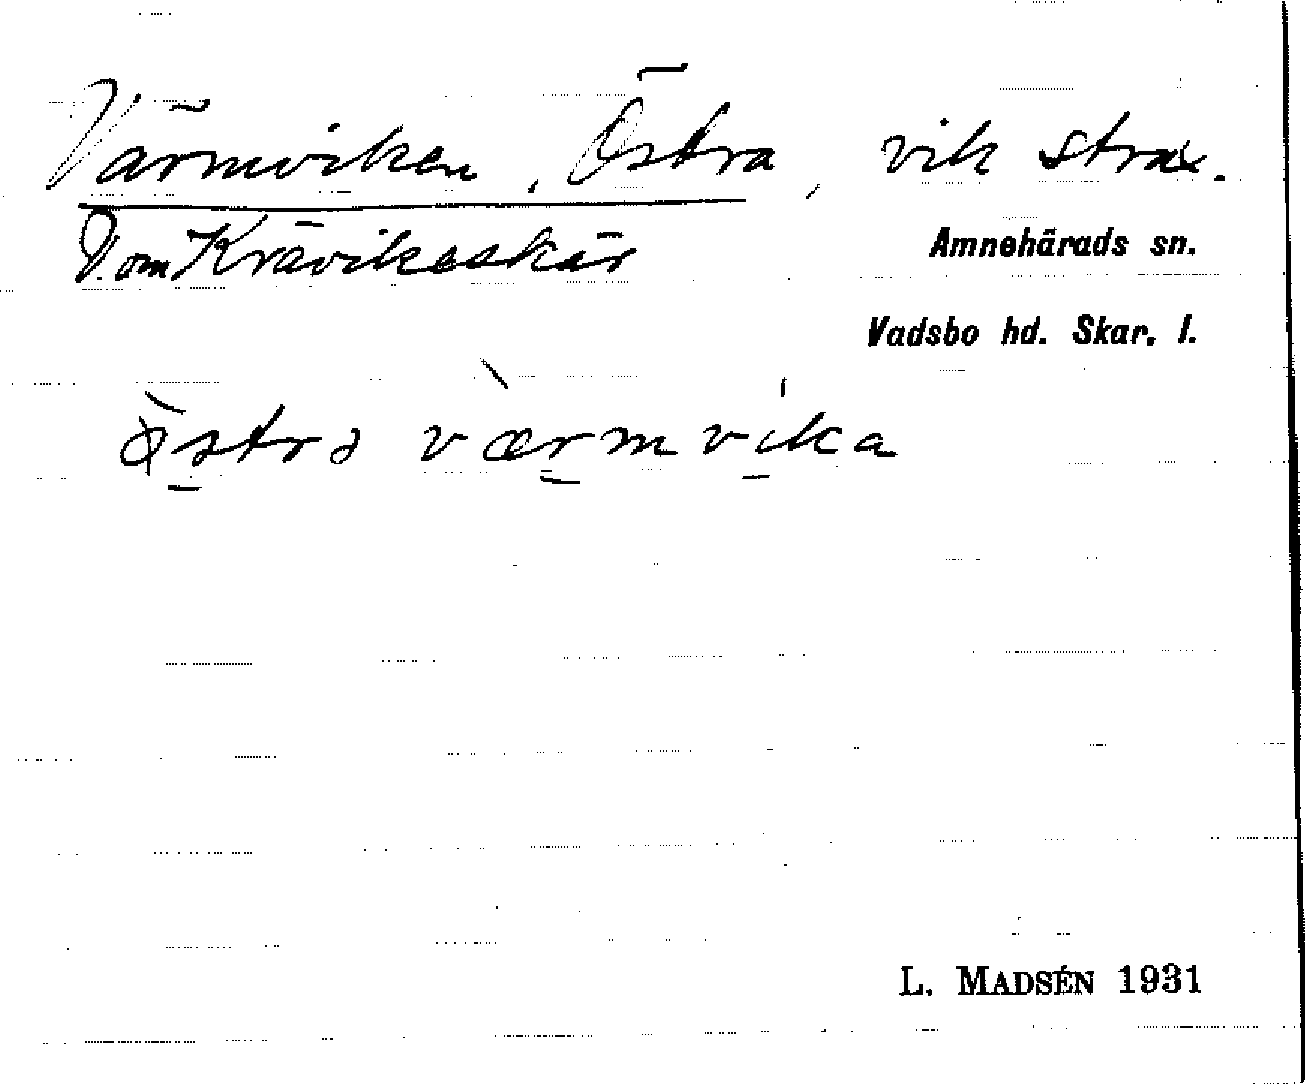 Värmviken, Östra, vik strax.
V. om Krävikeskär
Amnehärads sn.
Vadsbo hd. Skar. l.
ø̀strə værmvika
L. MADSÉN 1931